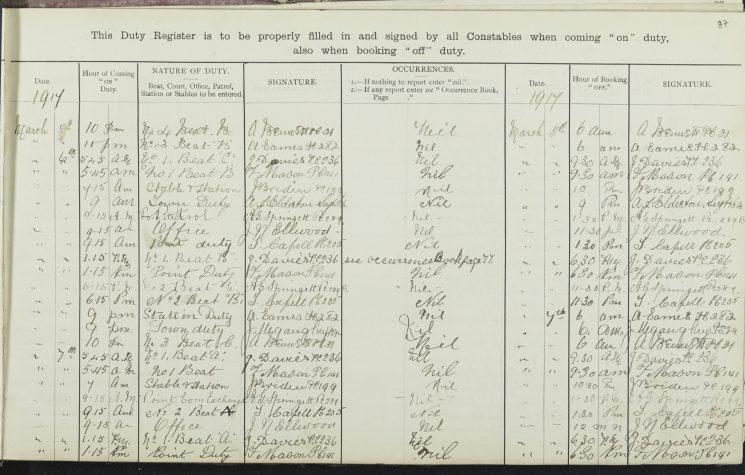 37
This Duty Register is to be properly filled in and signed by all Constables when coming "on" duty,
also when booking "off" duty.
Date. Hour of Coming "ON" Duty. NATURE OF DUTY. Beat, Court, Office, Patrol, Station or Stables to be entered. SIGNATURE OCCURRENCES. 1.—If nothing to report enter "nil." 2.—If any report enter see "Occurrence Book, Page ." Date. Hour of Booking "OFF." SIGNATURE.
1917 1917
March 5th 10 Pm No 4 Beat B A Bennett Nil March 6 am A Bennett
" " 10 pm No 3 Beat B A Eames PC 282 Nil " " 6 am A Eames PC 282
" 6th 5.45 A.M. No 1. Beat C. J. Davies PC 236 Nil " " 9.30 A.M. J. Davies PC 236
" " 5.45 am No 1 Beat B T Mason PC 141 nil " " 9.30 am T Mason PC 141
7.15 Am Stable & Station J Briden PC 199 Nil 10 Pm J Briden PC 199
9 am Town Duty Nil 9 Pm
9.15 A.M. Patrol A G Springett Nil 1.30 P.M. A G Springett
9.15 am Office J N Ellwood Nil 11.30 pm J N Ellwood
9.15 Am duty T Capell PC 205 Nil 1.30 Pm T Capell PC 205
1.15 P.M. No 1. Beat B. J. Davies PC 236 see occurrence Book page 77. 6.30 P.M. J. Davies PC 236
1.15 Pm Point Duty T Mason PC 141 Nil 6.30 Pm T Mason PC 141
6.15 P.M. No 2 Beat A G Springett Nil 11.30 P.M. A G Springett
6.15 Pm No 2 Beat B T Capell PC 205 Nil 11.30 Pm T Capell PC 205
9 pm Station Duty A Eames PC 282 Nil " 7th 6 am A Eames PC 282
9 pm Town duty Nil 6 Am
10 Pm No 3 Beat C. A Bennett Nil 6 am A Bennett
" 7th 5.45 A.M. No 1. Beat A. J. Davies PC 236 Nil 9.30 A.M. J Davies PC 236
5.45 am No 1 Beat T Mason PC 141 nil 9.30 am T Mason PC 141
7 Am Stable & Station J Briden PC 199 Nil 10.30 Pm J Briden PC 199
9.15 A.M. Point Corn Exchange A G Springett Nil 1.30 P.M. A G Springett
9.15 Am No 2 Beat T Capell PC 205 Nil 1.30 Pm T Capell PC 205
9.15 am Office J N Ellwood Nil 12 mn J N Ellwood
1.15 P.M. No 1. Beat A. J. Davies PC 236 Nil 6.30 P.M. J. Davies PC 236
1.15 Pm Point Duty T Mason PC 141 nil 6.30 Pm T Mason PC 141